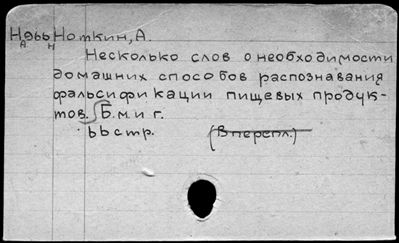 Нэьь Ноткин, А.
А н
Несколько слов о необходимости
домашних способов распознавания
фальсификации пищевых продук-
тов. Б.м. и г.
ььстр. (В перепл.)